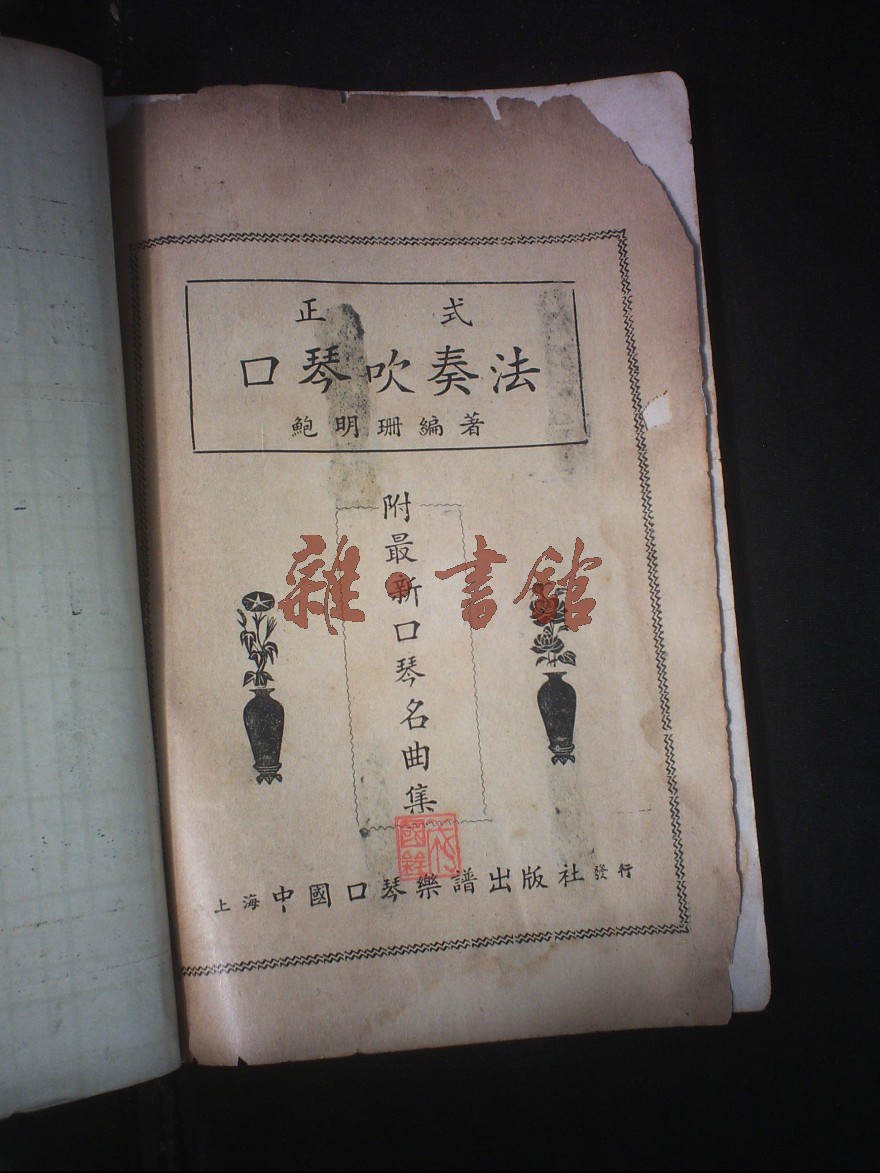 正式
口琴吹奏法
鮑明珊編著
附最新口琴名曲集
雜·書館
上海中國口琴樂譜出版社發行